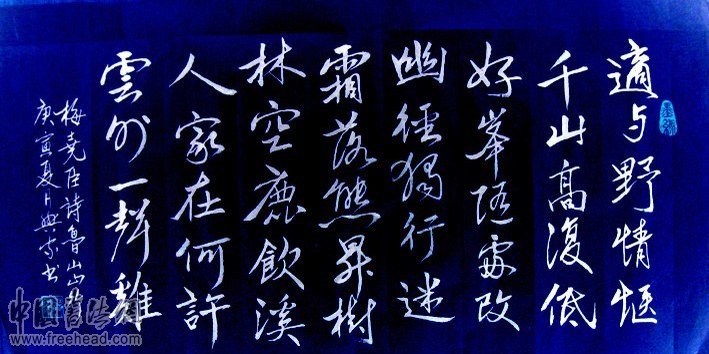 適与野情愜
千山高復低
好峯随處改
幽徑獨行迷
霜落熊昇樹
林空鹿飲溪
人家在何許
雲外一聲雞
梅堯臣詩魯山山行
庚寅夏月書
www.freehead.com